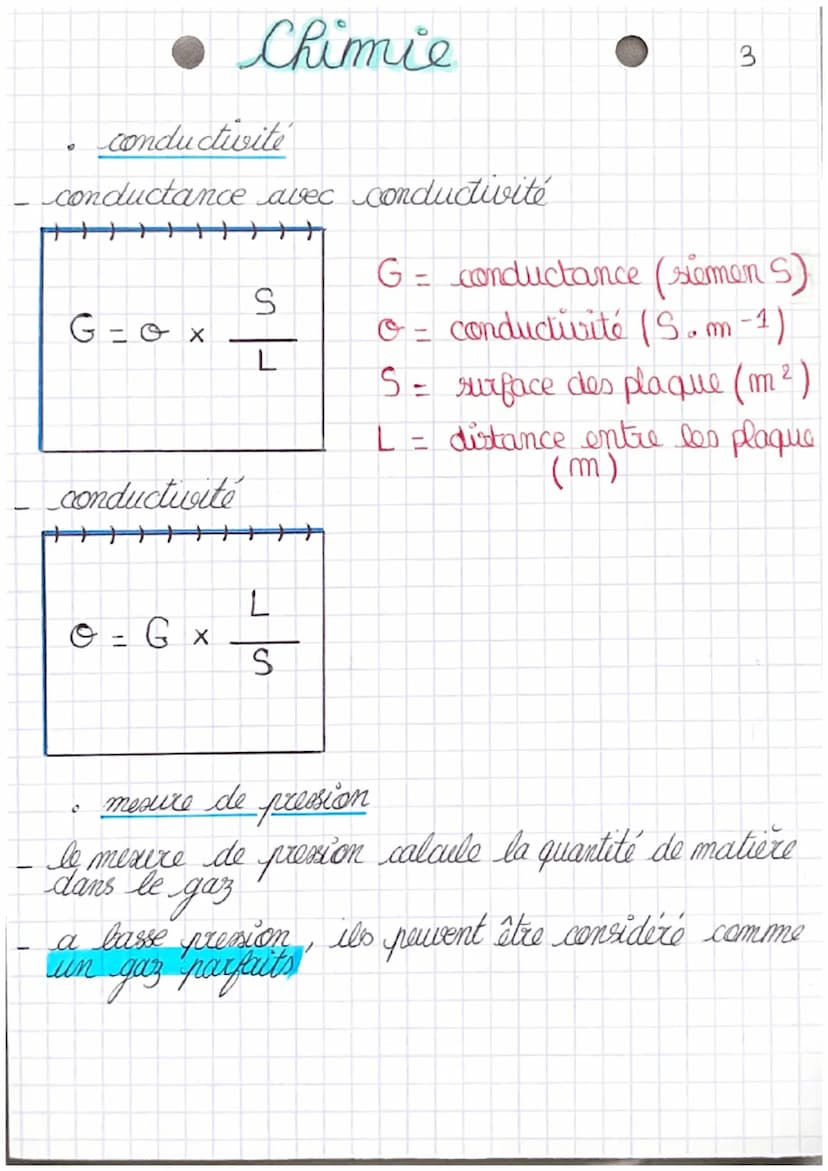 Chimie
3
• conductivité
- conductance avec conductivité
G = σ x S/L
G = conductance (siemen S)
σ = conductivité (S.m-1)
S = surface des plaque (m²)
L = distance entre les plaque
(m)
- conductivité
σ = G x L/S
• mesure de pression
- le mesure de pression calcule la quantité de matière
dans le gaz
- a basse pression, ils peuvent être considéré comme
un gaz parfaits